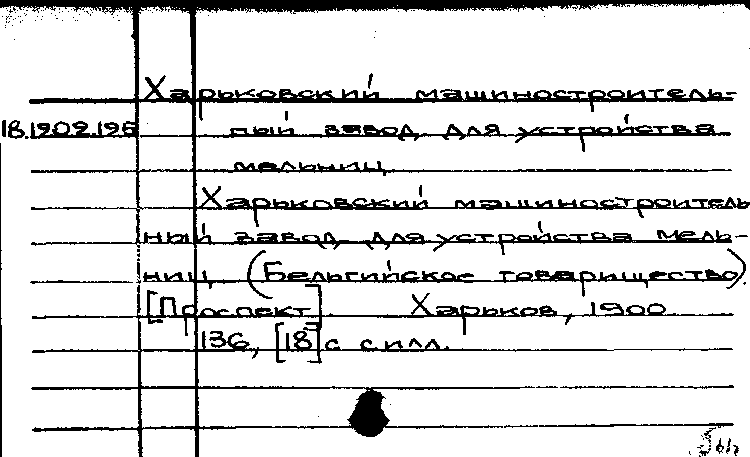 Харьковский машиностроитель-
18.1902.195 ный завод для устройства
мельниц
Харьковский машиностроитель
ный завод для устройства мель-
ниц (Бельгийское товарищество).
[Проспект]. Харьков, 1900
136, [18] с с илл.